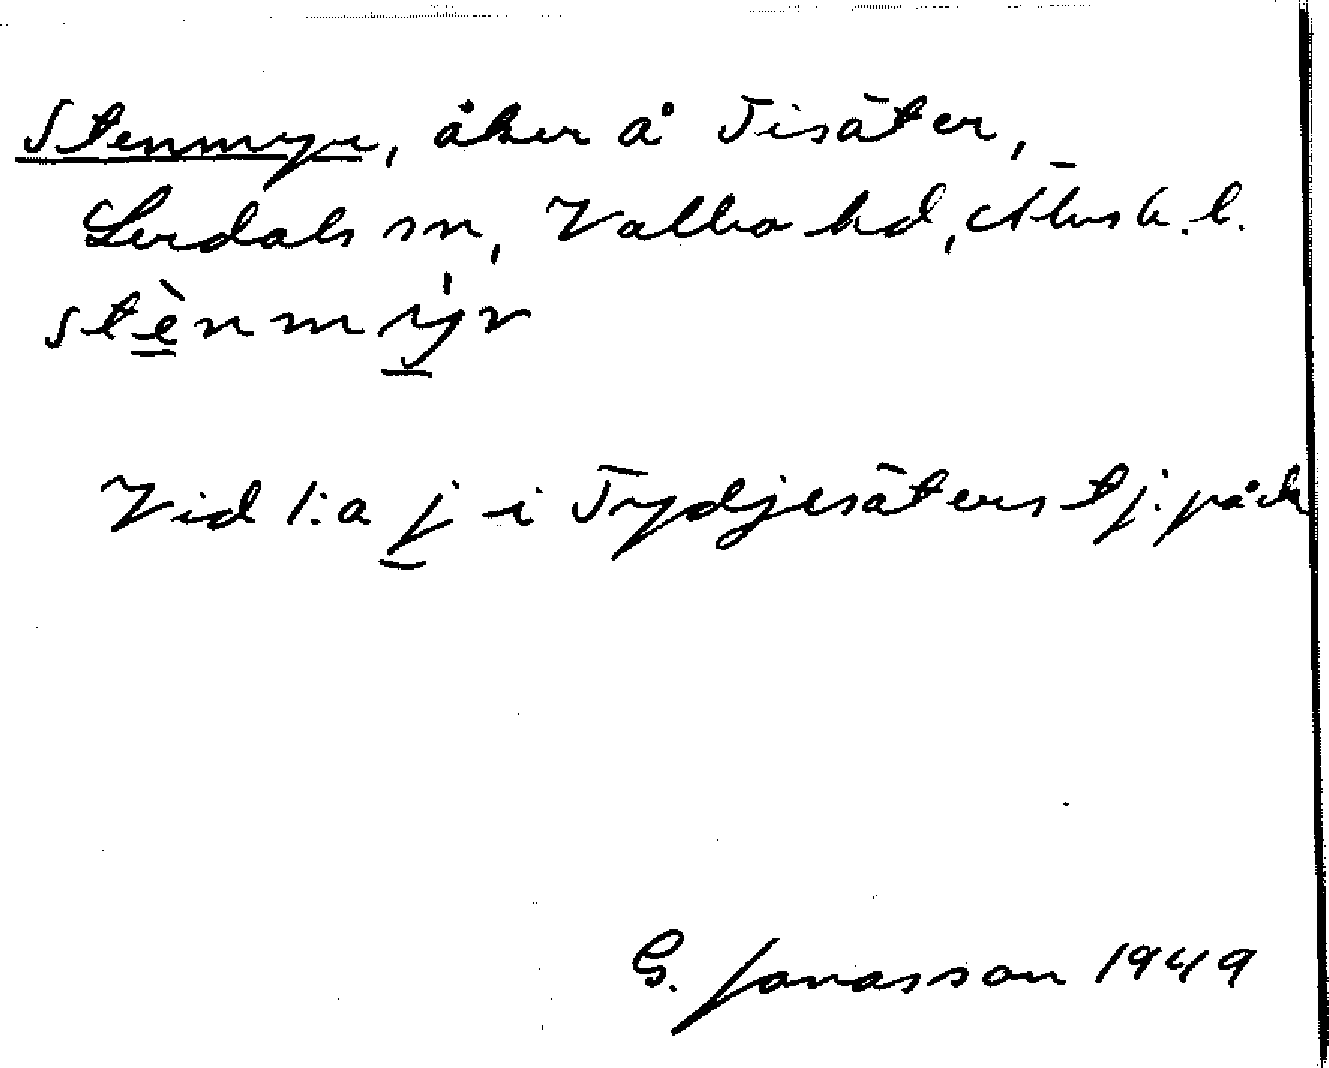 Stenmyr, åker å Tisäter,
Lerdals sn, Valbo hd, Älvsb. l.
stènmy̍r
Vid l:a j i Tydjesäters tj. påck
G. Jonasson 1949